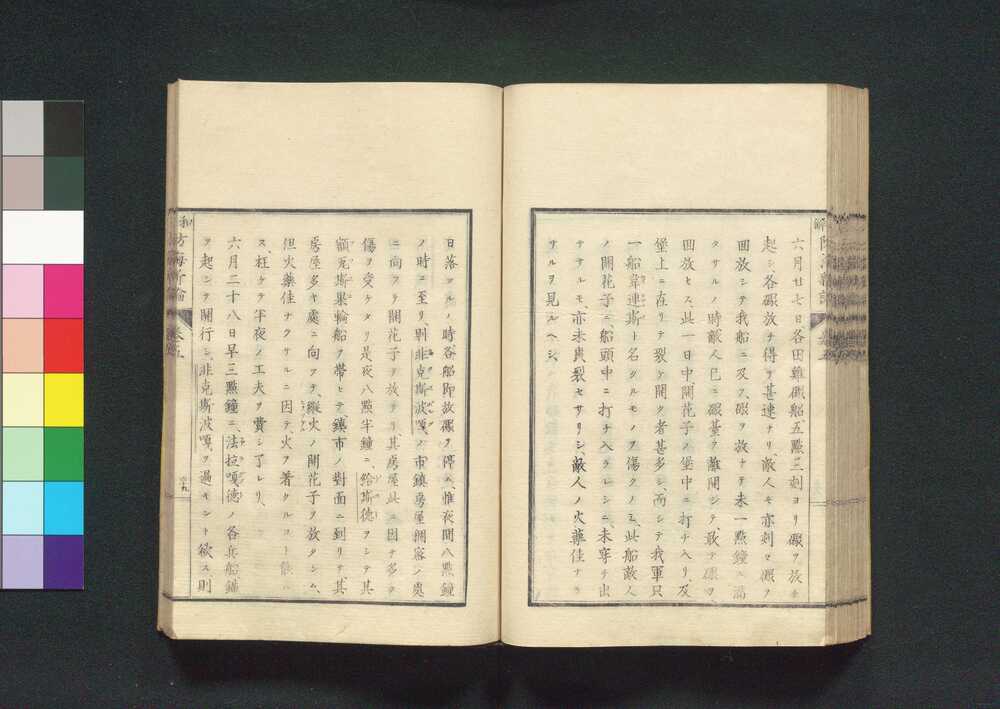 六月廿七日各田雞礮船五㸃三刻ヨリ礮ヲ放チ
起シ各礮放チ得テ甚速ナリ、敵人モ亦刻セ礮ヲ
回放シテ我船ニ及フ、礮ヲ放チテ未一㸃鐘ニ滿
タサルノ時敵人已ニ礮臺ヲ離開シテ、敢テ礮ヲ
回放セス、此一日中、開花子ノ堡中ニ打チ入リ及
堡上ニ在リテ裂ケ開ク者甚多シ、而シテ我軍只
一船韋連斯ト名クルモノヲ傷クノミ、此船敵人
ノ開花子ニ、船頭中ニ打チ入ラレシニ、未穿チ出
テサルモ、亦未炸裂セサリシ、敵人ノ火藥佳ナラ
サルヲ見ルヘシ、
日落ツルノ時、各船即放礮ヲ停ム、惟夜間八㸃鐘
ノ時ニ至リ、則非克斯波嘎ノ市鎮房屋稠密ノ處
ニ向フテ開花子ヲ放テリ其房屋此ニ因テ多ク
傷ヲ受ケタリ是夜八㸃半鐘ニ、給斯德ヲシテ其
額瓦斯果輪船ヲ帶ヒテ鎮市ノ對面ニ到リテ其
房屋多キ處ニ向フテ、縱火ノ開花子ヲ放タシム、
但火藥佳ナラサルニ因テ、火ヲ著クルコト能ハ
ス、枉ケテ半夜ノ工夫ヲ費シ了レリ、
六月二十八日早三㸃鐘ニ、法拉嘎德ノ各兵船錨
ヲ起シテ開行シ、非克斯波嘎ヲ過キント欲ス則
防海新論
卷五